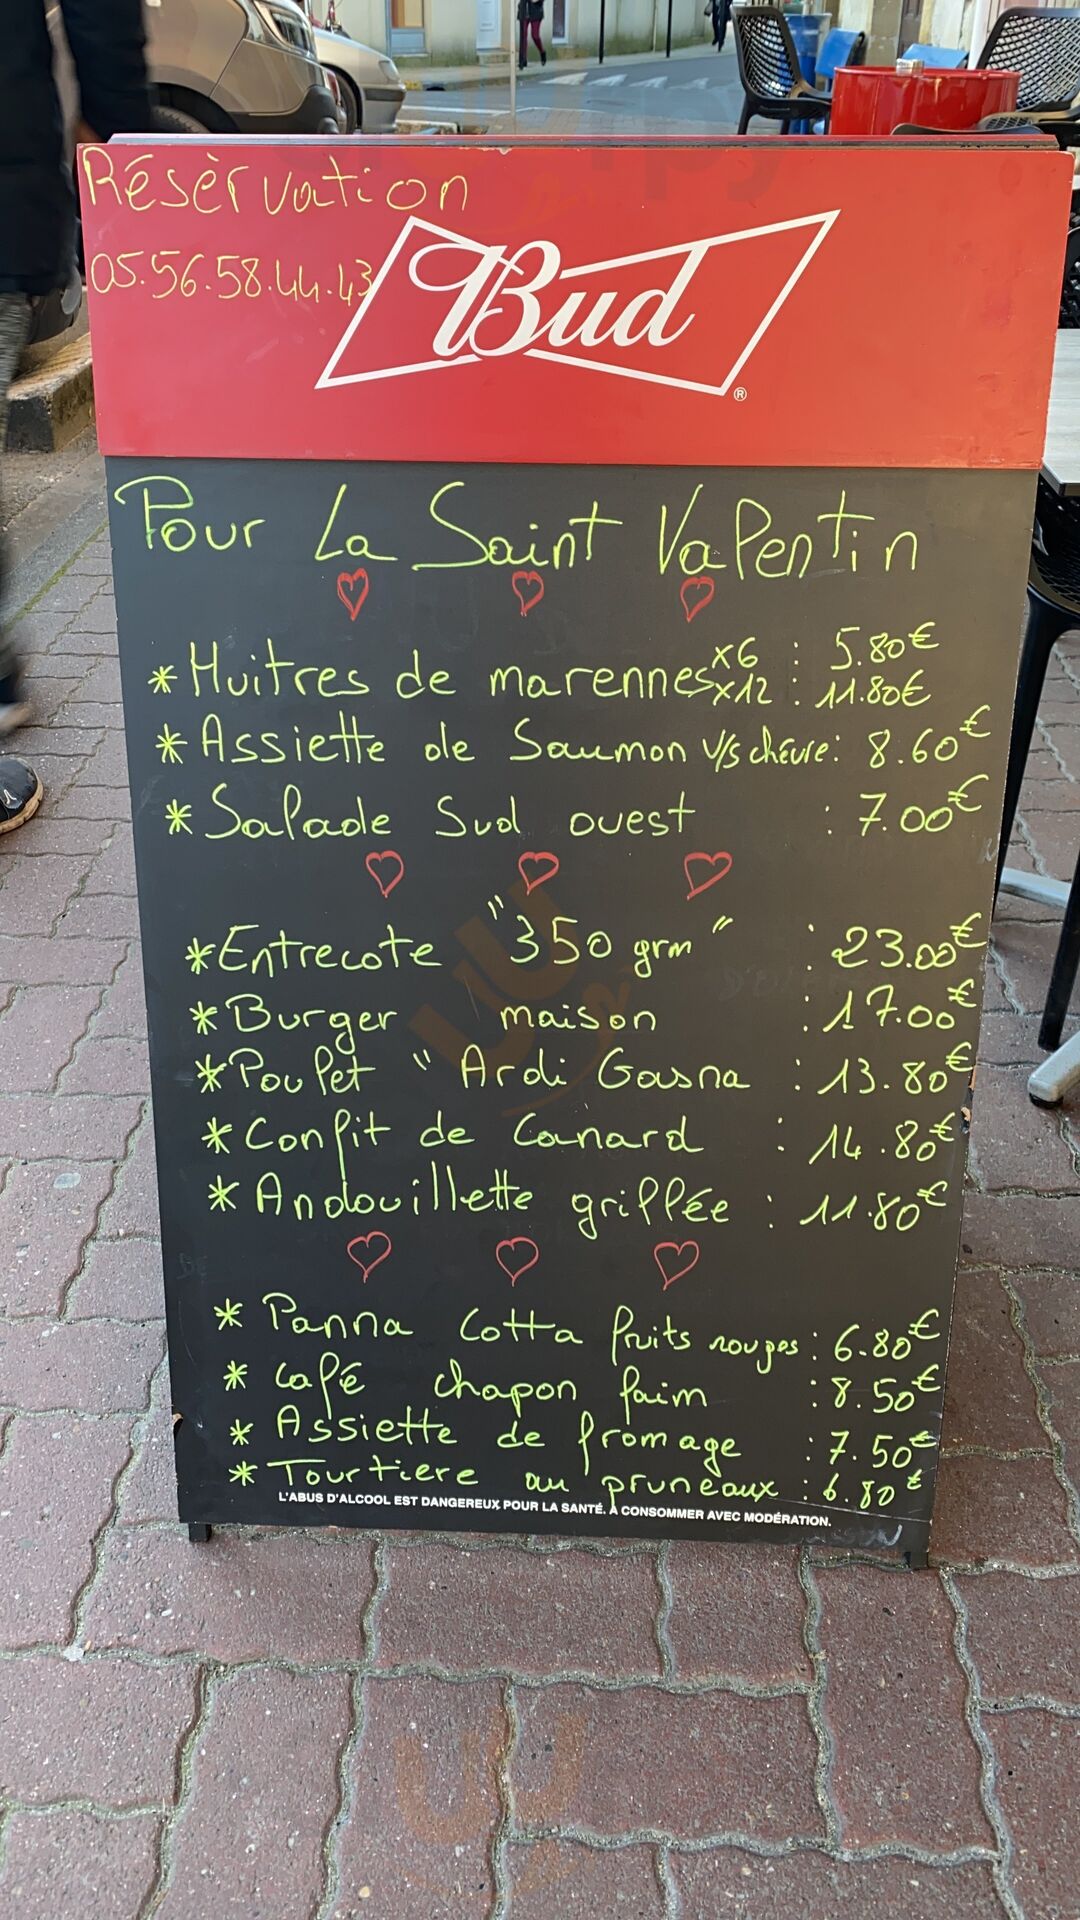 Résèrvation
05.56.58.44.43
Bud
®
Pour La Saint Valentin
* Huitres de marennes x6 : 5.80€
x12 : 11.80€
* Assiette de Saumon v/s chévre : 8.60€
* Salade Sud ouest : 7.00€
* Entrecote "350 grm" : 23.00€
* Burger maison : 17.00€
* Poulet " Ardi Gasna : 13.80€
* Confit de Canard : 14.80€
* Andouillette grillée : 11.80€
* Panna Cotta fruits rouges : 6.80€
* Café chapon faim : 8.50€
* Assiette de fromage : 7.50€
* Tourtiere au pruneaux : 6.80€
L'ABUS D'ALCOOL EST DANGEREUX POUR LA SANTÉ. À CONSOMMER AVEC MODÉRATION.